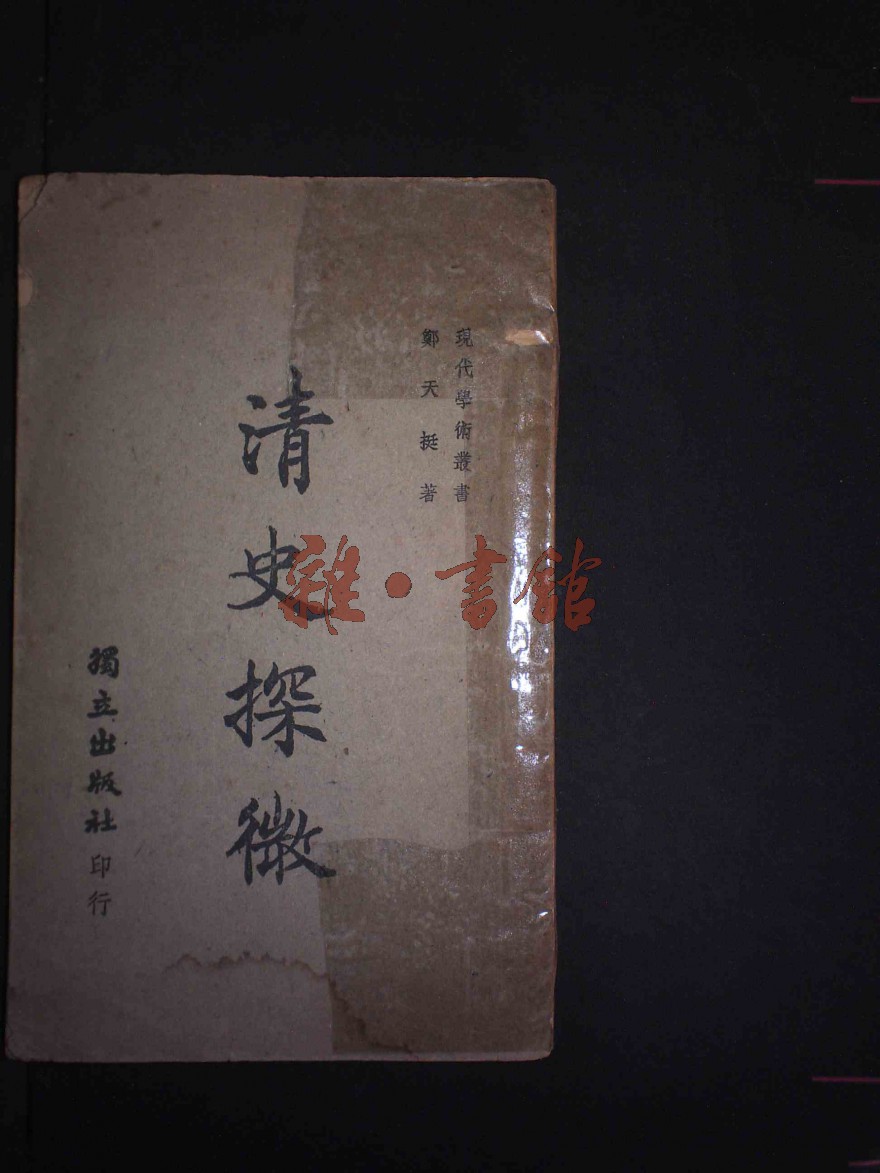 現代學術叢書
鄭天挺著
清史探微
獨立出版社印行
雜·書館